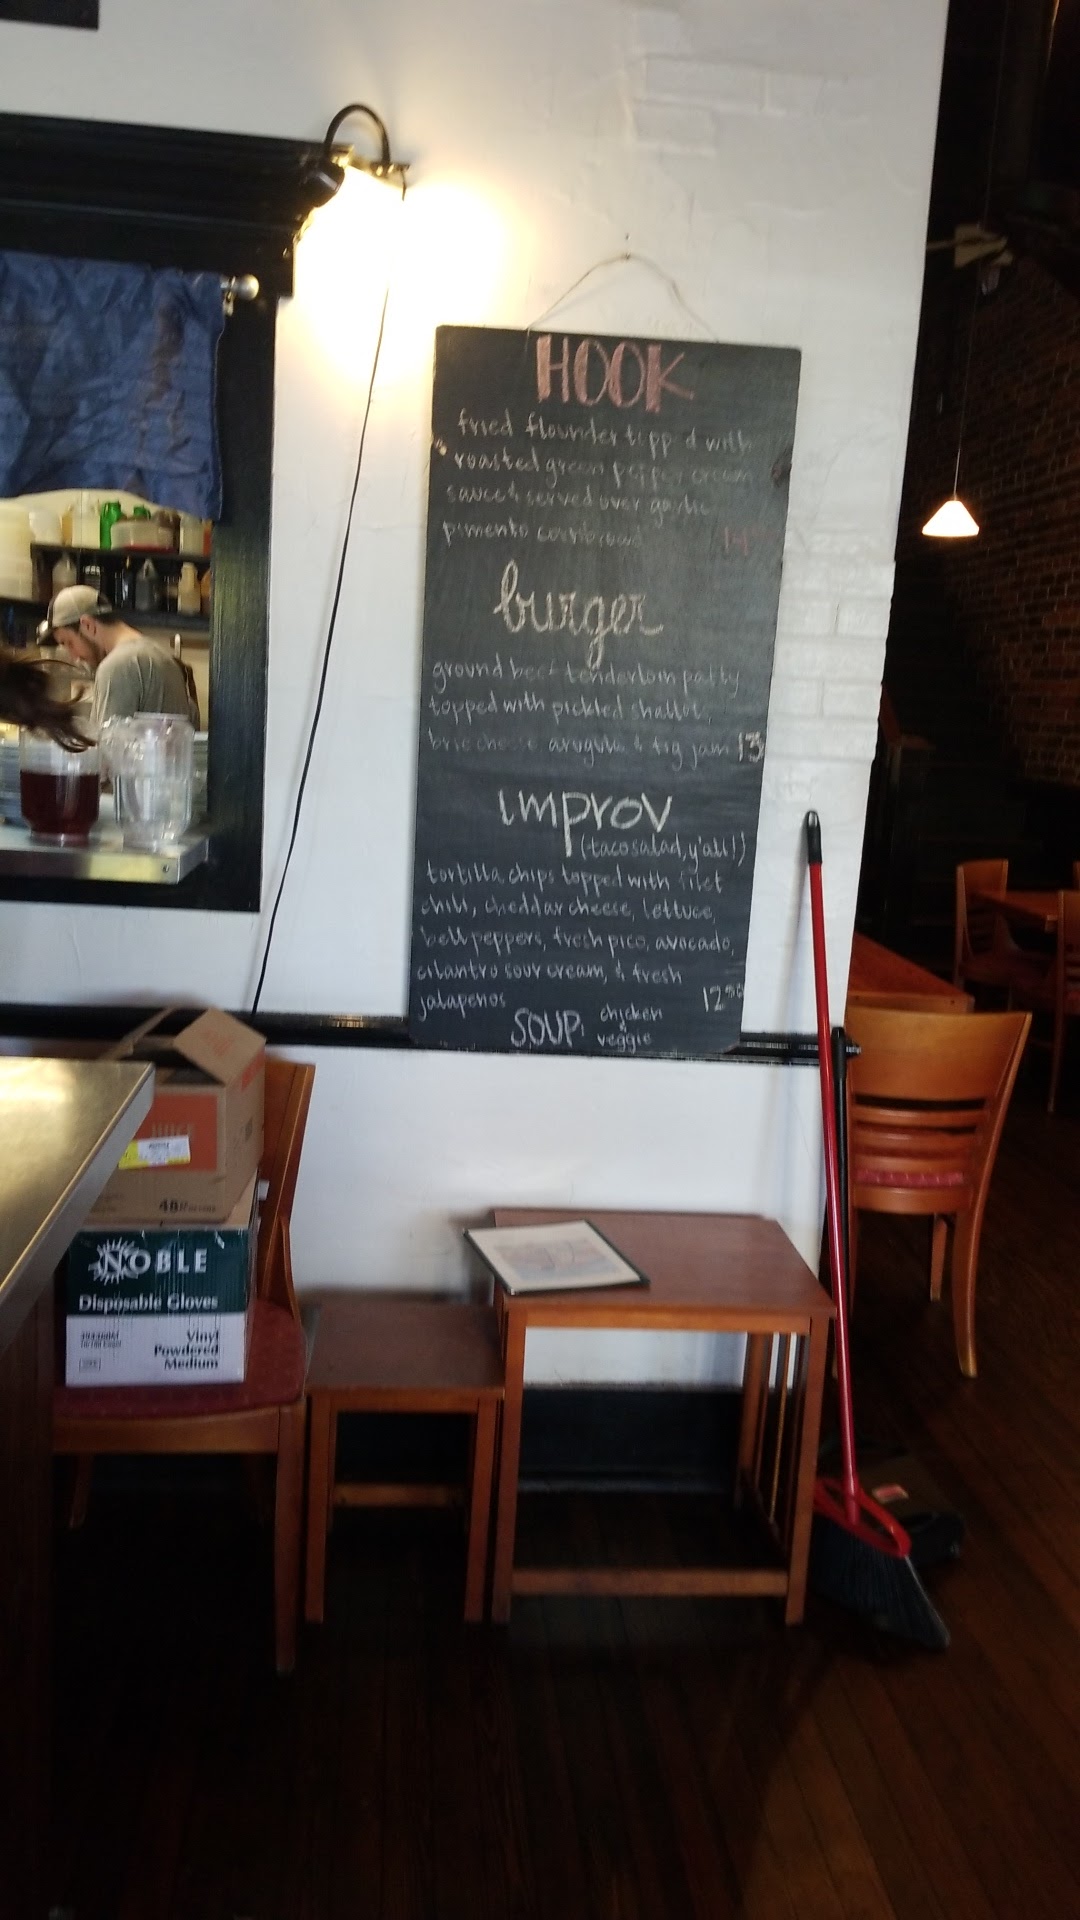 HOOK
fried flounder topp d with
roasted green pepper cream
sauce & served over garlic
pimento cornbread
burger
ground beef tenderloin patty
topped with pickled shallots,
brie cheese arugula & fig jam 13
improv
(taco salad, y'all!)
tortilla chips topped with filet
chili, cheddar cheese, lettuce,
bell peppers, fresh pico, avocado,
cilantro sour cream, & fresh
jalapenos 12
SOUP: chicken
&
veggie
JUICE
48
NOBLE
Disposable Gloves
Vinyl
Powdered
Medium